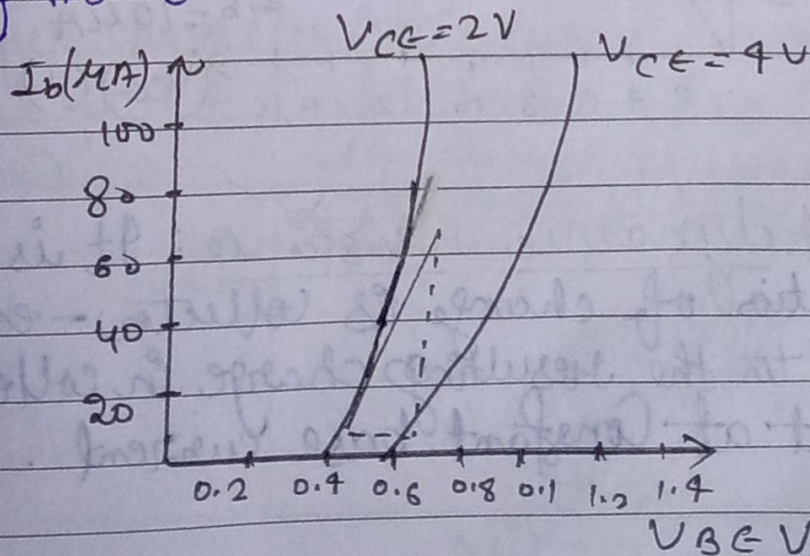 VCE=2V
Ib(μA)
VCE=4V
100
80
60
40
20
0.2 0.4 0.6 0.8 0.1 1.2 1.4
VBE V